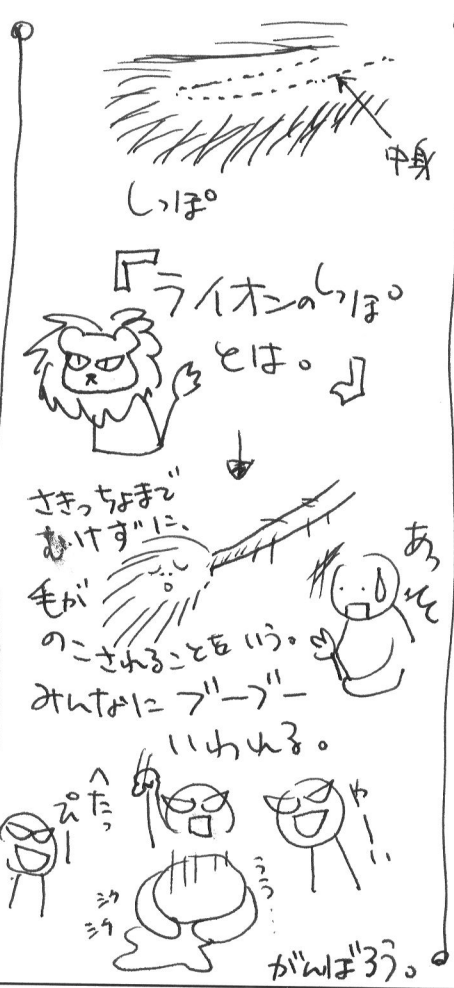 中身
しっぽ
『ライオンのしっぽ
とは。』
さきっちょまで
むけずに、
毛が
のこされることをいう。
あっ
みんなにブーブー
いわれる。
へたっ
ぴー
やーい
うう…
シク
シク
がんばろう。